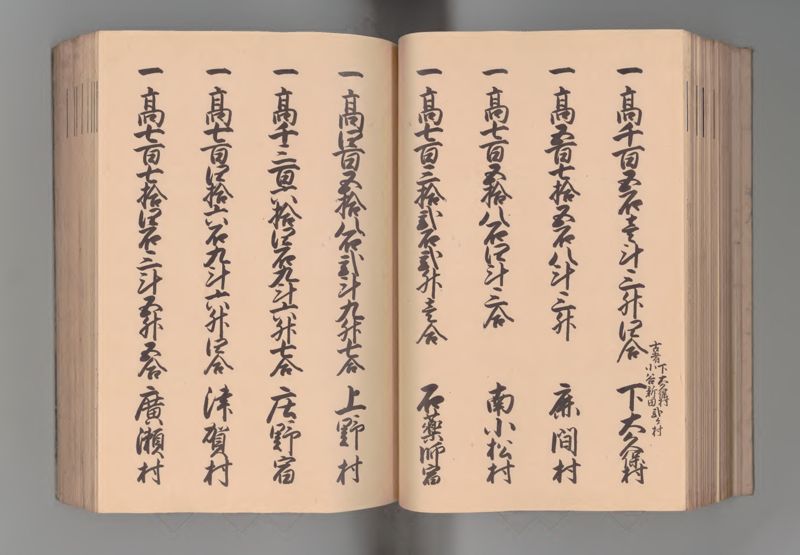 一 高千百五石壱斗三升四合 下大久保村
古者 下大久保村
小谷新田 弐ケ村
一 高五百七拾五石八斗三升 麻間村
一 高七百五拾八石四斗三合 南小松村
一 高七百三拾弐石弐升壱合 石薬師宿
一 高四百五拾八石弐斗九升七合 上野村
一 高千三百八拾四石九斗六升七合 庄野宿
一 高七百四拾六石九斗六升四合 津賀村
一 高七百七拾四石三斗五升五合 廣瀬村